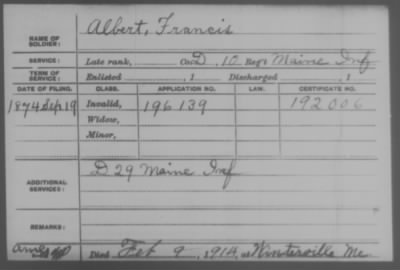 Albert, Francis
NAME OF SOLDIER:
SERVICE: Late rank, Co. D, 10 Reg't Maine Inf
TERM OF SERVICE: Enlisted , 1 Discharged , 1
DATE OF FILING. CLASS. APPLICATION NO. LAW. CERTIFICATE NO.
1874 Sep 19 Invalid, 196 139 192 006
Widow,
Minor,
D 29 Maine Inf
ADDITIONAL SERVICES:
REMARKS:
Died Feb 9, 1914, at Winterville Me.